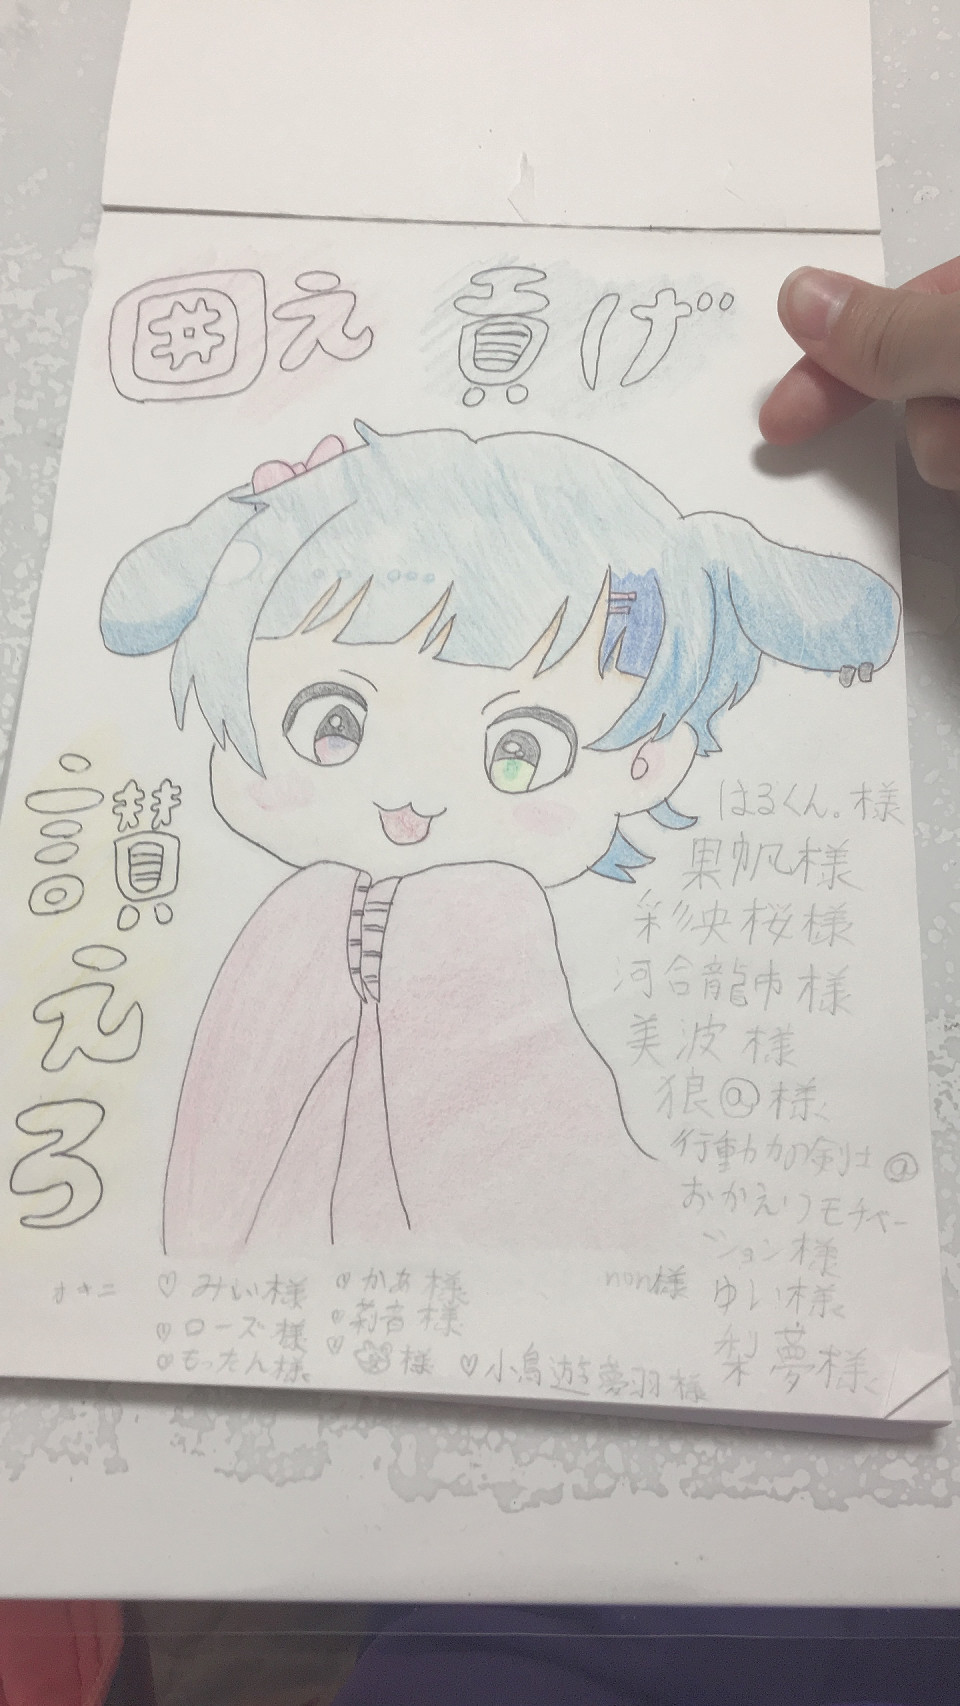 囲え 貢げ
讃えろ
はるくん。様
果帆様
彩央桜様
河合龍市様
美波様
狼@様
行動力の剣士@
おかえりモチャー
ション様
ゆい様
梨夢様
non様
オキニ
♡みい様
♡ローズ様
♡もったん様
♡かあ様
♡莉音様
♡ 様
♡小鳥遊夢羽様